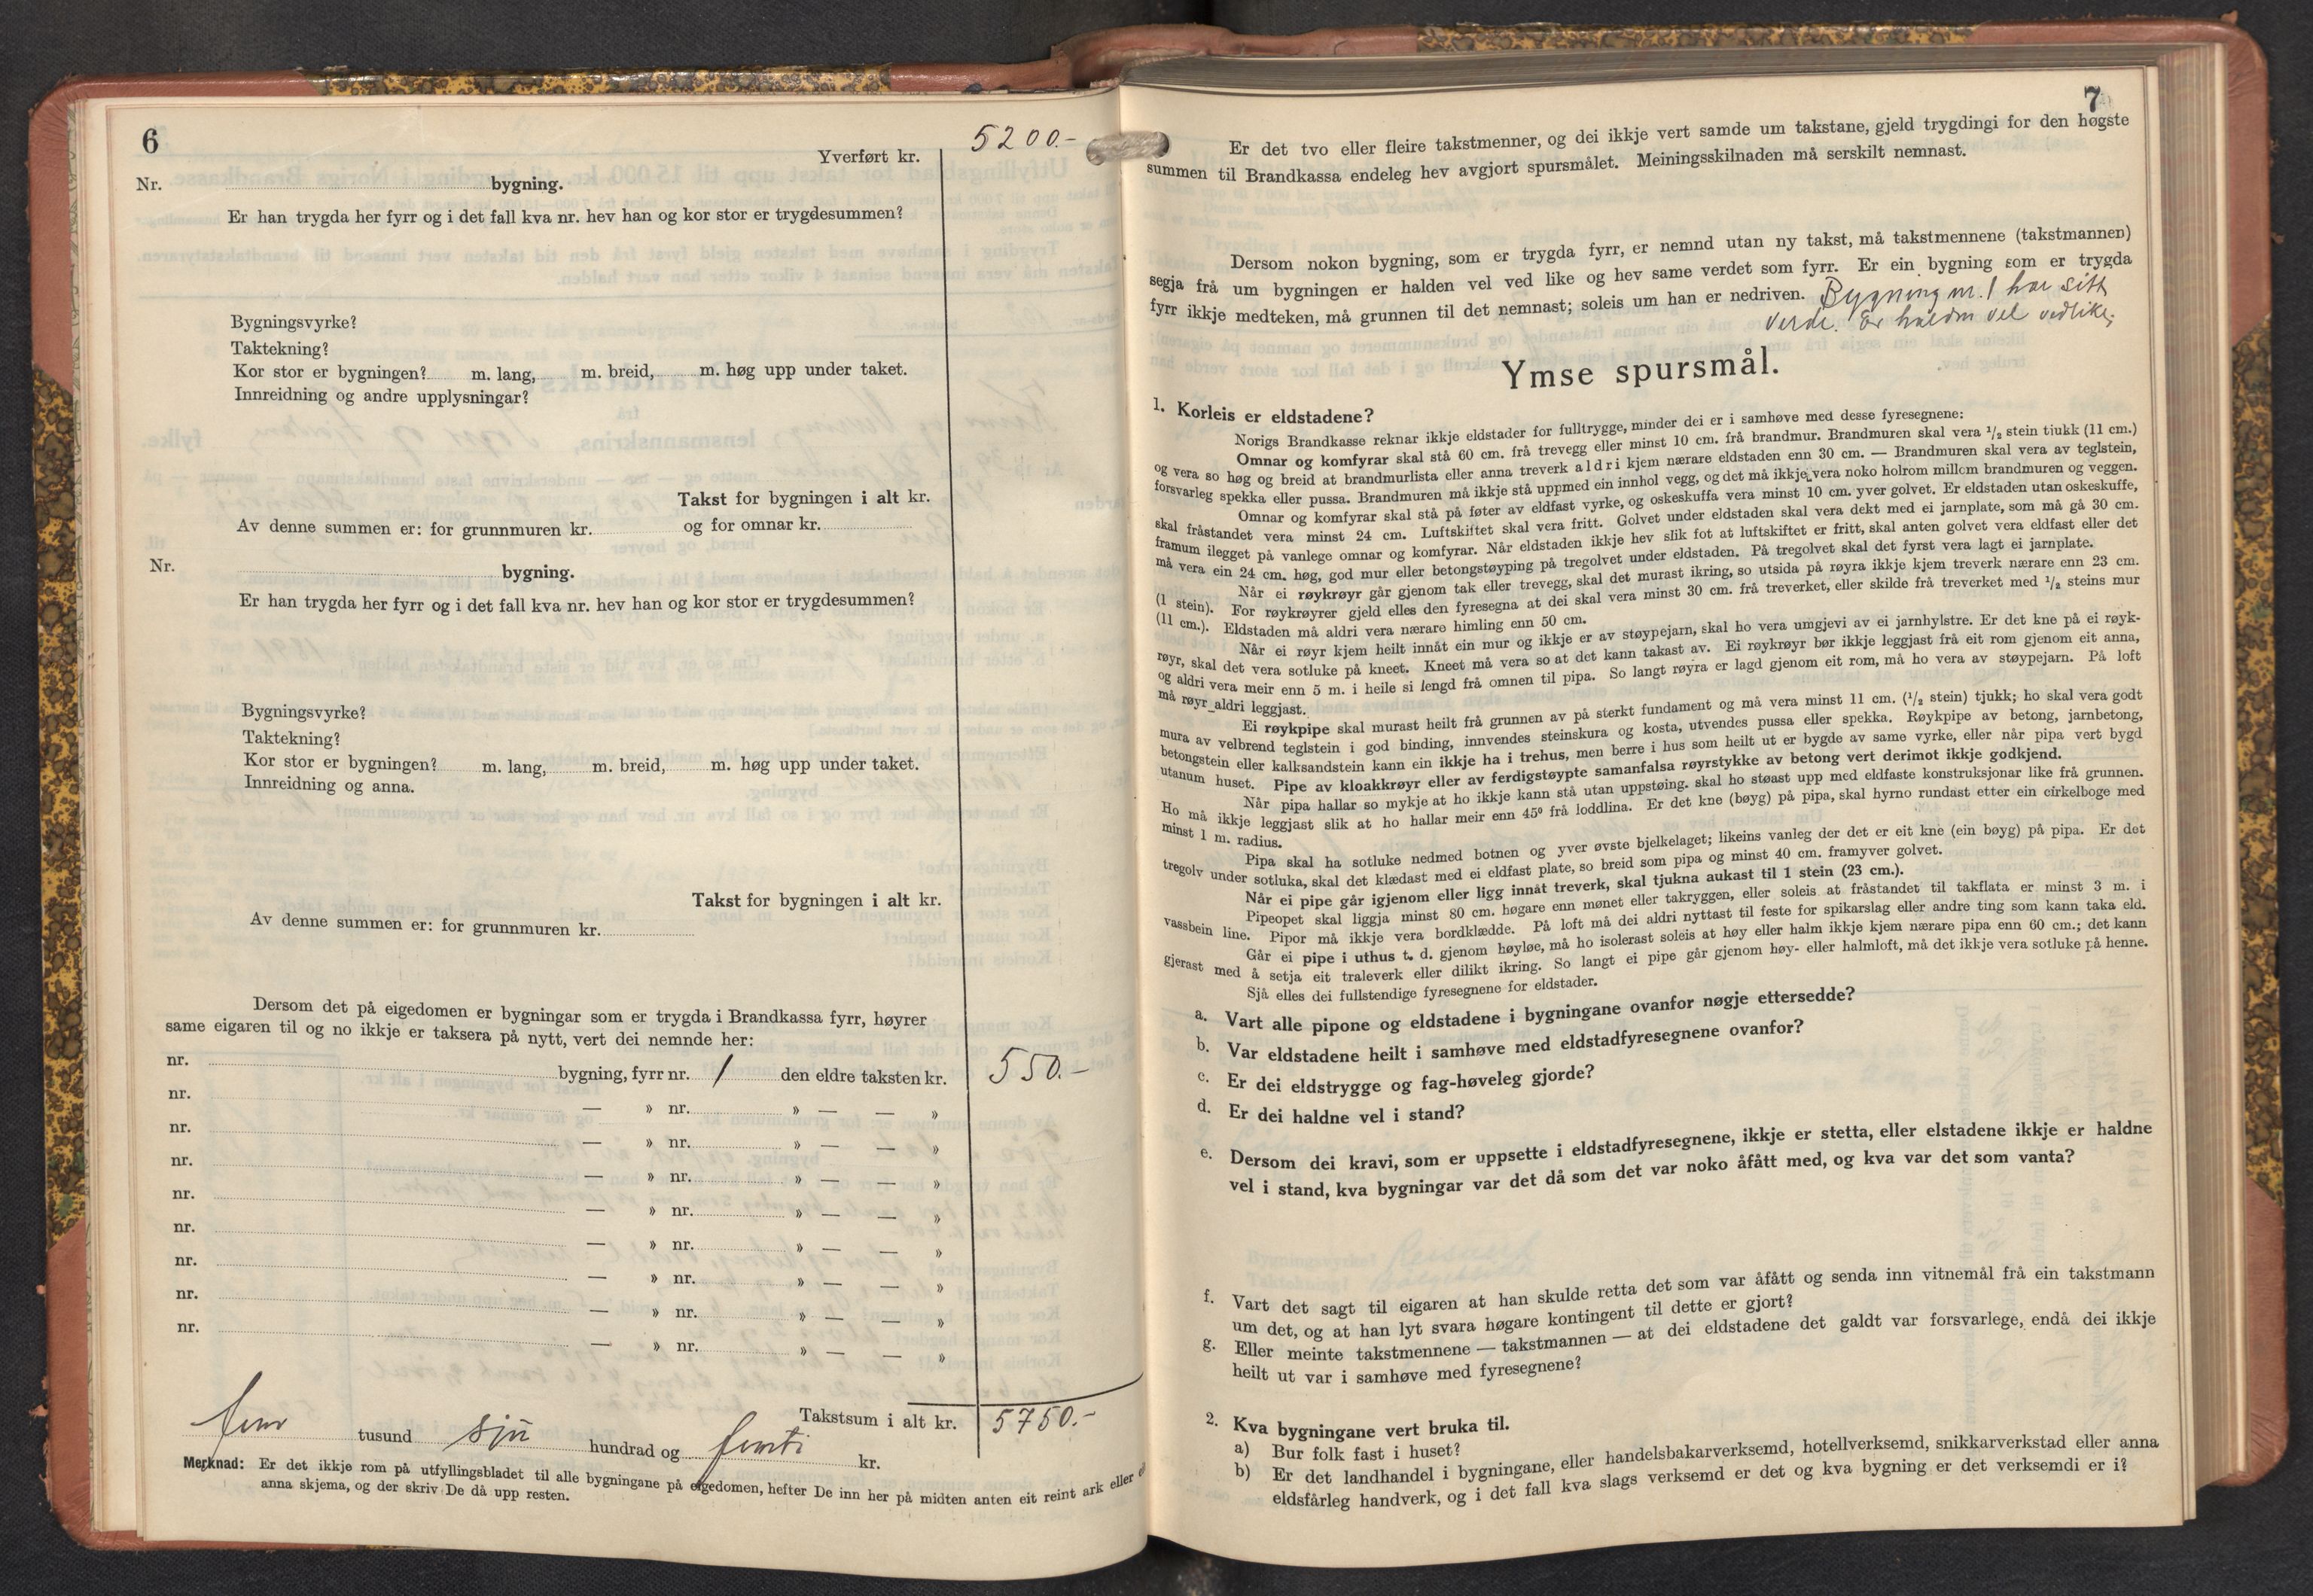 6
Yverført kr. 5200.-
Nr. bygning.
Er han trygda her fyrr og i det fall kva nr. hev han og kor stor er trygdesummen?
Bygningsvyrke?
Taktekning?
Kor stor er bygningen? m. lang, m. breid, m. høg upp under taket.
Innreidning og andre upplysningar?
Takst for bygningen i alt kr.
Av denne summen er: for grunnmuren kr. og for omnar kr.
Nr. bygning.
Er han trygda her fyrr og i det fall kva nr. hev han og kor stor er trygdesummen?
Bygningsvyrke?
Taktekning?
Kor stor er bygningen? m. lang, m. breid, m. høg upp under taket.
Innreidning og anna.
Takst for bygningen i alt kr.
Av denne summen er: for grunnmuren kr.
Dersom det på eigedomen er bygningar som er trygda i Brandkassa fyrr, høyrer
same eigaren til og no ikkje er taksera på nytt, vert dei nemnde her:
nr. bygning, fyrr nr. 1 den eldre taksten kr. 550.-
nr. — » nr. » — — »
nr. — » nr. » — — »
nr. — » nr. » — — »
nr. — » nr. » — — »
nr. — » nr. » — — »
nr. — » nr. » — — »
nr. — » nr. » — — »
nr. — » nr. » — — »
Takstsum i alt kr. 5750.-
fem tusund sju hundrad og femti kr.
Merknad: Er det ikkje rom på utfyllingsbladet til alle bygningane på eigedomen, hefter De inn her på midten anten eit reint ark eller
anna skjema, og der skriv De då upp resten.
7
Er det tvo eller fleire takstmenner, og dei ikkje vert samde um takstane, gjeld trygdingi for den høgste
summen til Brandkassa endeleg hev avgjort spursmålet. Meiningsskilnaden må serskilt nemnast.
Dersom nokon bygning, som er trygda fyrr, er nemnd utan ny takst, må takstmennene (takstmannen)
segja frå um bygningen er halden vel ved like og hev same verdet som fyrr. Er ein bygning som er trygda
fyrr ikkje medteken, må grunnen til det nemnast; soleis um han er nedriven. Bygning nr. 1 har sitt
verde. Er halden vel vedlike.
Ymse spursmål.
1. Korleis er eldstadene?
Norigs Brandkasse reknar ikkje eldstader for fulltrygge, minder dei er i samhøve med desse fyresegnene:
Omnar og komfyrar skal stå 60 cm. frå trevegg eller minst 10 cm. frå brandmur. Brandmuren skal vera 1/2 stein tjukk (11 cm.)
og vera so høg og breid at brandmurlista eller anna treverk aldri kjem nærare eldstaden enn 30 cm. — Brandmuren skal vera av teglstein,
forsvarleg spekka eller pussa. Brandmuren må ikkje stå uppmed ein innhol vegg, og det må ikkje vera noko holrom millom brandmuren og veggen.
Omnar og komfyrar skal stå på føter av eldfast vyrke, og oskeskuffa vera minst 10 cm. yver golvet. Er eldstaden utan oskeskuffe,
skal fråstandet vera minst 24 cm. Luftskiftet skal vera fritt. Golvet under eldstaden skal vera dekt med ei jarnplate, som må gå 30 cm.
framum ilegget på vanlege omnar og komfyrar. Når eldstaden ikkje hev slik fot at luftskiftet er fritt, skal anten golvet vera eldfast eller det
må vera ein 24 cm. høg, god mur eller betongstøyping på tregolvet under eldstaden. På tregolvet skal det fyrst vera lagt ei jarnplate.
Når ei røykrøyr går gjenom tak eller trevegg, skal det murast ikring, so utsida på røyra ikkje kjem treverk nærare enn 23 cm.
(1 stein). For røykrøyrer gjeld elles den fyresegna at dei skal vera minst 30 cm. frå treverket, eller skilde frå treverket med 1/2 steins mur
(11 cm.). Eldstaden må aldri vera nærare himling enn 50 cm.
Når ei røyr kjem heilt innåt ein mur og ikkje er av støypejarn, skal ho vera umgjevi av ei jarnhylstre. Er det kne på ei røyk-
røyr, skal det vera sotluke på kneet. Kneet må vera so at det kann takast av. Ei røykrøyr bør ikkje leggjast frå eit rom gjenom eit anna,
og aldri vera meir enn 5 m. i heile si lengd frå omnen til pipa. So langt røyra er lagd gjenom eit rom, må ho vera av støypejarn. På loft
må røyr aldri leggjast.
Ei røykpipe skal murast heilt frå grunnen av på sterkt fundament og må vera minst 11 cm. (1/2 stein) tjukk; ho skal vera godt
mura av velbrend teglstein i god binding, innvendes steinskura og kosta, utvendes pussa eller spekka. Røykpipe av betong, jarnbetong,
betongstein eller kalksandstein kann ein ikkje ha i trehus, men berre i hus som heilt ut er bygde av same vyrke, eller når pipa vert bygd
utanum huset. Pipe av kloakkrøyr eller av ferdigstøypte samanfalsa røyrstykke av betong vert derimot ikkje godkjend.
Når pipa hallar so mykje at ho ikkje kann stå utan uppstøing. skal ho støast upp med eldfaste konstruksjonar like frå grunnen.
Ho må ikkje leggjast slik at ho hallar meir enn 45° frå loddlina. Er det kne (bøyg) på pipa, skal hyrno rundast etter ein cirkelboge med
minst 1 m. radius.
Pipa skal ha sotluke nedmed botnen og yver øvste bjelkelaget; likeins vanleg der det er eit kne (ein bøyg) på pipa. Er det
tregolv under sotluka, skal det klædast med ei eldfast plate, so breid som pipa og minst 40 cm. framyver golvet.
Når ei pipe går igjenom eller ligg innåt treverk, skal tjukna aukast til 1 stein (23 cm.).
Pipeopet skal liggja minst 80 cm. høgare enn mønet eller takryggen, eller soleis at fråstandet til takflata er minst 3 m. i
vassbein line. Pipor må ikkje vera bordklædde. På loft må dei aldri nyttast til feste for spikarslag eller andre ting som kann taka eld.
Går ei pipe i uthus t. d. gjenom høyløe, må ho isolerast soleis at høy eller halm ikkje kjem nærare pipa enn 60 cm.; det kann
gjerast med å setja eit traleverk eller dilikt ikring. So langt ei pipe går gjenom høy- eller halmloft, må det ikkje vera sotluke på henne.
Sjå elles dei fullstendige fyresegnene for eldstader.
a. Vart alle pipone og eldstadene i bygningane ovanfor nøgje ettersedde?
b. Var eldstadene heilt i samhøve med eldstadfyresegnene ovanfor?
c. Er dei eldstrygge og fag-høveleg gjorde?
d. Er dei haldne vel i stand?
e. Dersom dei kravi, som er uppsette i eldstadfyresegnene, ikkje er stetta, eller elstadene ikkje er haldne
vel i stand, kva bygningar var det då som det var noko åfått med, og kva var det som vanta?
f. Vart det sagt til eigaren at han skulde retta det som var åfått og senda inn vitnemål frå ein takstmann
um det, og at han lyt svara høgare kontingent til dette er gjort?
g. Eller meinte takstmennene — takstmannen — at dei eldstadene det galdt var forsvarlege, endå dei ikkje
heilt ut var i samhøve med fyresegnene?
2. Kva bygningane vert bruka til.
a) Bur folk fast i huset?
b) Er det landhandel i bygningane, eller handelsbakarverksemd, hotellverksemd, snikkarverkstad eller anna
eldsfårleg handverk, og i det fall kva slags verksemd er det og kva bygning er det verksemdi er i?